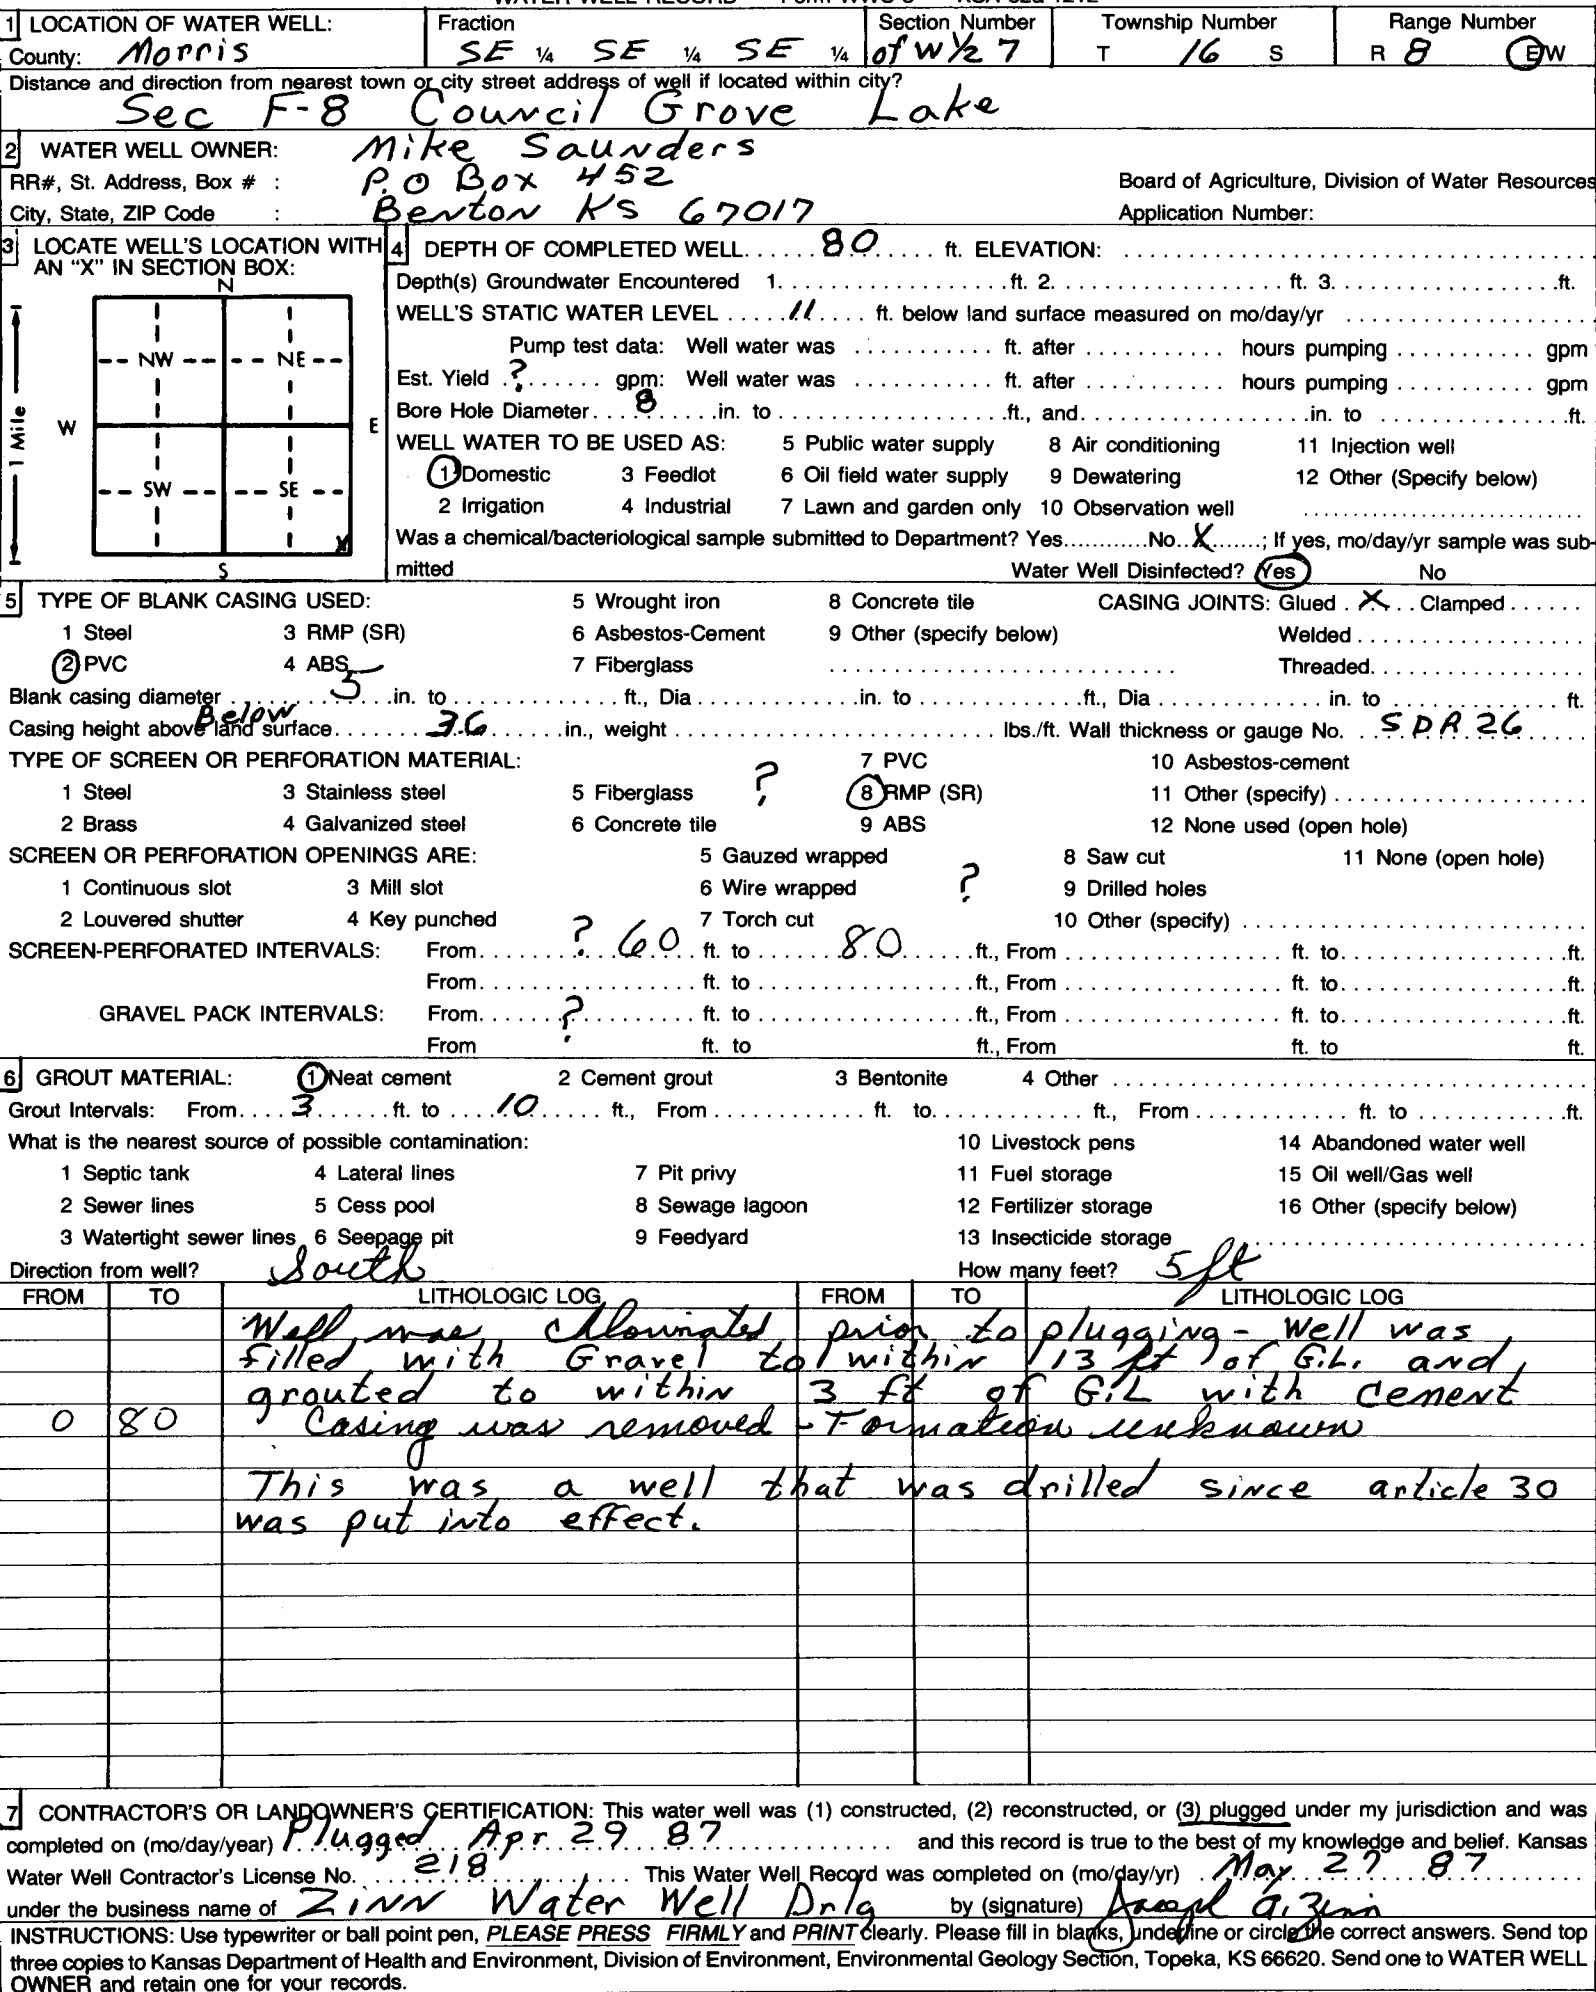 WATER WELL RECORD Form WWC-5 KSA 82a-1212
1 LOCATION OF WATER WELL: Fraction Section Number Township Number Range Number
County: Morris SE ¼ SE ¼ SE ¼ of W ½ 7 T 16 S R 8 E W
Distance and direction from nearest town or city street address of well if located within city?
Sec F-8 Council Grove Lake
2 WATER WELL OWNER: Mike Saunders
RR#, St. Address, Box # : P.O Box 452 Board of Agriculture, Division of Water Resources
City, State, ZIP Code : Benton KS 67017 Application Number:
3 LOCATE WELL'S LOCATION WITH AN "X" IN SECTION BOX:
N
NW NE
W E
SW SE
X
S
1 Mile
4 DEPTH OF COMPLETED WELL 80 ft. ELEVATION:
Depth(s) Groundwater Encountered 1. ft. 2. ft. 3. ft.
WELL'S STATIC WATER LEVEL 11 ft. below land surface measured on mo/day/yr
Pump test data: Well water was ft. after hours pumping gpm
Est. Yield ? gpm: Well water was ft. after hours pumping gpm
Bore Hole Diameter 8 in. to ft., and in. to ft.
WELL WATER TO BE USED AS: 5 Public water supply 8 Air conditioning 11 Injection well
1 Domestic 3 Feedlot 6 Oil field water supply 9 Dewatering 12 Other (Specify below)
2 Irrigation 4 Industrial 7 Lawn and garden only 10 Observation well
Was a chemical/bacteriological sample submitted to Department? Yes No X ; If yes, mo/day/yr sample was sub-
mitted Water Well Disinfected? Yes No
5 TYPE OF BLANK CASING USED: 5 Wrought iron 8 Concrete tile CASING JOINTS: Glued X Clamped
1 Steel 3 RMP (SR) 6 Asbestos-Cement 9 Other (specify below) Welded
2 PVC 4 ABS 7 Fiberglass Threaded
Blank casing diameter 5 in. to ft., Dia in. to ft., Dia in. to ft.
Below
Casing height above land surface 36 in., weight lbs./ft. Wall thickness or gauge No. SDR 26
TYPE OF SCREEN OR PERFORATION MATERIAL: ? 7 PVC 10 Asbestos-cement
1 Steel 3 Stainless steel 5 Fiberglass 8 RMP (SR) 11 Other (specify)
2 Brass 4 Galvanized steel 6 Concrete tile 9 ABS 12 None used (open hole)
SCREEN OR PERFORATION OPENINGS ARE: 5 Gauzed wrapped 8 Saw cut 11 None (open hole)
1 Continuous slot 3 Mill slot 6 Wire wrapped ? 9 Drilled holes
2 Louvered shutter 4 Key punched 7 Torch cut 10 Other (specify)
SCREEN-PERFORATED INTERVALS: From ? 60 ft. to 80 ft., From ft. to ft.
From ft. to ft., From ft. to ft.
GRAVEL PACK INTERVALS: From ? ft. to ft., From ft. to ft.
From ft. to ft., From ft. to ft.
6 GROUT MATERIAL: 1 Neat cement 2 Cement grout 3 Bentonite 4 Other
Grout Intervals: From 3 ft. to 10 ft., From ft. to ft., From ft. to ft.
What is the nearest source of possible contamination: 10 Livestock pens 14 Abandoned water well
1 Septic tank 4 Lateral lines 7 Pit privy 11 Fuel storage 15 Oil well/Gas well
2 Sewer lines 5 Cess pool 8 Sewage lagoon 12 Fertilizer storage 16 Other (specify below)
3 Watertight sewer lines 6 Seepage pit 9 Feedyard 13 Insecticide storage
Direction from well? South How many feet? 5 ft
FROM TO LITHOLOGIC LOG FROM TO LITHOLOGIC LOG
Well was Clowinated prior to plugging - Well was
filled with Gravel to within 13 ft of G.L. and
grouted to within 3 ft of G.L with cement
0 80 Casing was removed - Formation unknown
This was a well that was drilled since article 30
was put into effect.
7 CONTRACTOR'S OR LANDOWNER'S CERTIFICATION: This water well was (1) constructed, (2) reconstructed, or (3) plugged under my jurisdiction and was
completed on (mo/day/year) Plugged Apr 29 87 and this record is true to the best of my knowledge and belief. Kansas
Water Well Contractor's License No. 218 This Water Well Record was completed on (mo/day/yr) May 27 87
under the business name of Zinn Water Well Drlg by (signature) Joseph A. Zinn
INSTRUCTIONS: Use typewriter or ball point pen, PLEASE PRESS FIRMLY and PRINT clearly. Please fill in blanks, underline or circle the correct answers. Send top
three copies to Kansas Department of Health and Environment, Division of Environment, Environmental Geology Section, Topeka, KS 66620. Send one to WATER WELL
OWNER and retain one for your records.